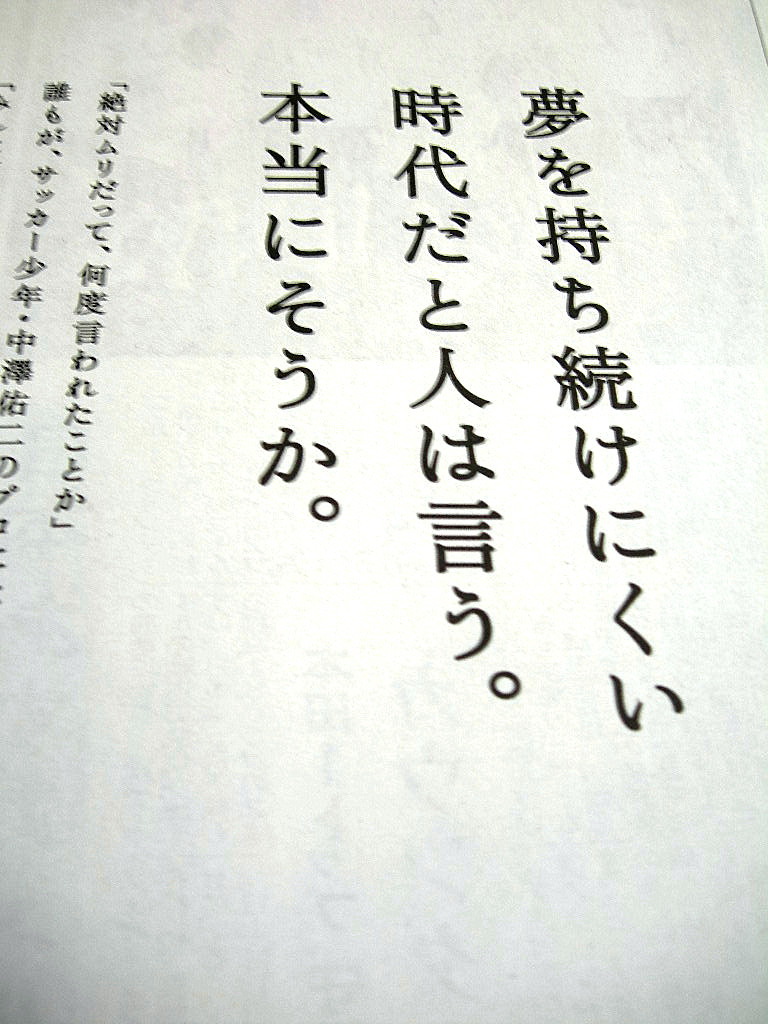 夢を持ち続けにくい
時代だと人は言う。
本当にそうか。
「絶対ムリだって、何度言われたことか」
誰もが、サッカー少年・中澤佑二のプロ